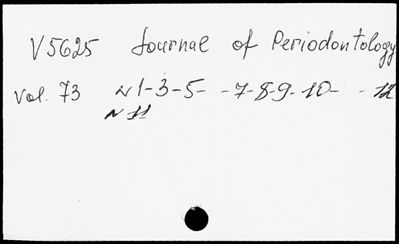 V5625 Journal of Periodontology
Vol. 73 N 1-3-5- -7-8-9-10- -12
N 11